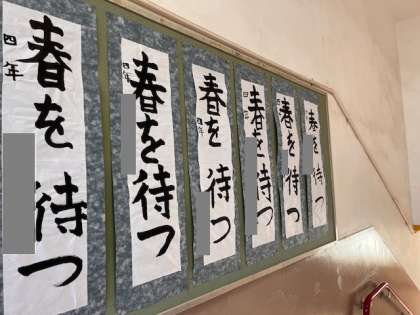 春を待つ
四年
春を待つ
四年
春を待つ
四年
春を待つ
春を待つ
春を待つ